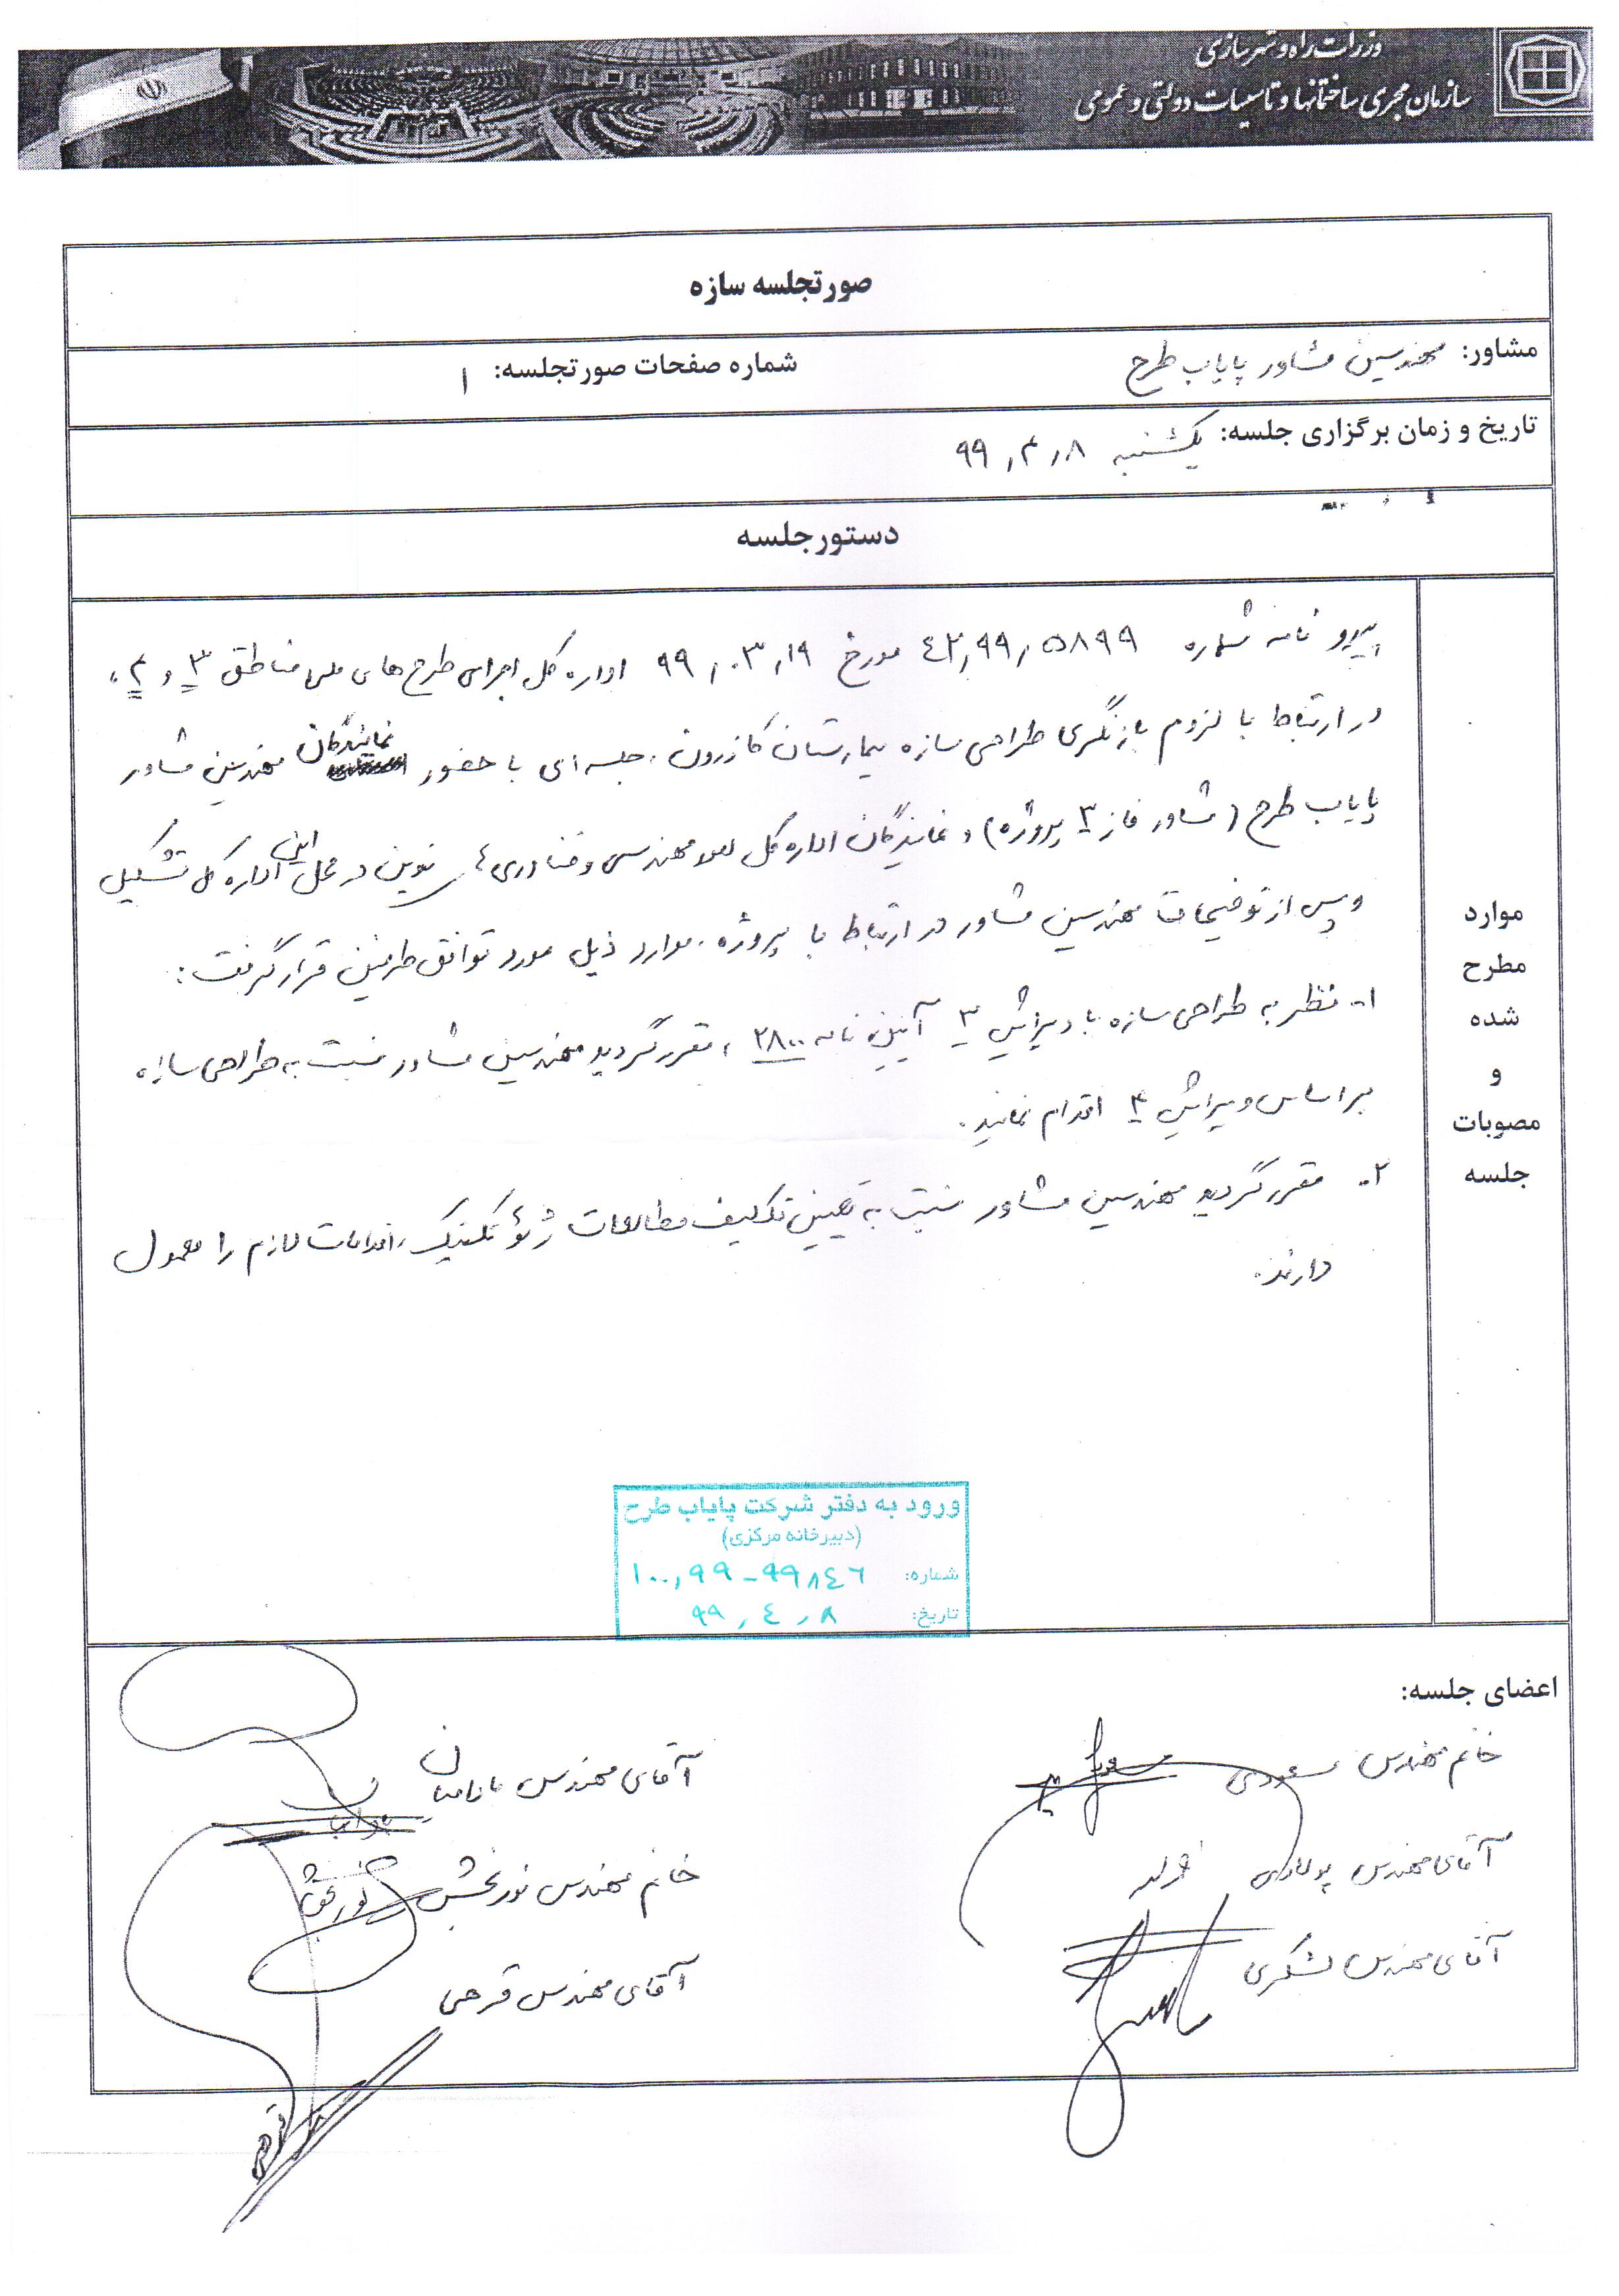 وزارت راه و شهرسازی
سازمان مجری ساختمانها و تاسیسات دولتی و عمومی
صورتجلسه سازه
مشاور: مهندسین مشاور پایاب طرح
شماره صفحات صورتجلسه: ۱
تاریخ و زمان برگزاری جلسه: یکشنبه ۹۹/۴/۸
دستورجلسه
موارد
مطرح
شده
و
مصوبات
جلسه
پیرو نامه شماره ۴۲/۹۹/۵۸۹۹ مورخ ۹۹/۰۳/۱۹ اداره کل اجرای طرح های ملی مناطق ۳ و ۴،
در ارتباط با لزوم بازنگری طراحی سازه بیمارستان کازرون، جلسه ای با حضور نمایندگان مهندسین مشاور
پایاب طرح (مشاور فاز ۳ پروژه) و نمایندگان اداره کل مهندسی و فناوری های نوین در محل این اداره کل تشکیل
و پس از توضیحات مهندسین مشاور در ارتباط با پروژه، موارد ذیل مورد توافق طرفین قرار گرفت:
۱- نظر به طراحی سازه با ویرایش ۳ آیین نامه ۲۸۰۰، مقرر گردید مهندسین مشاور نسبت به طراحی سازه
بر اساس ویرایش ۴ اقدام نمایند.
۲- مقرر گردید مهندسین مشاور نسبت به تعیین تکلیف مطالعات ژئوتکنیک، اقدامات لازم را معمول
دارند.
ورود به دفتر شرکت پایاب طرح
(دبیرخانه مرکزی)
شماره: ۱۰۰/۹۹-۹۹۸۴۶
تاریخ: ۹۹/۴/۸
اعضای جلسه:
خانم مهندس مسعودی
آقای مهندس
آقای مهندس پولادی
خانم مهندس نوربخش
نوربخش
آقای مهندس لشکری
آقای مهندس فرحی